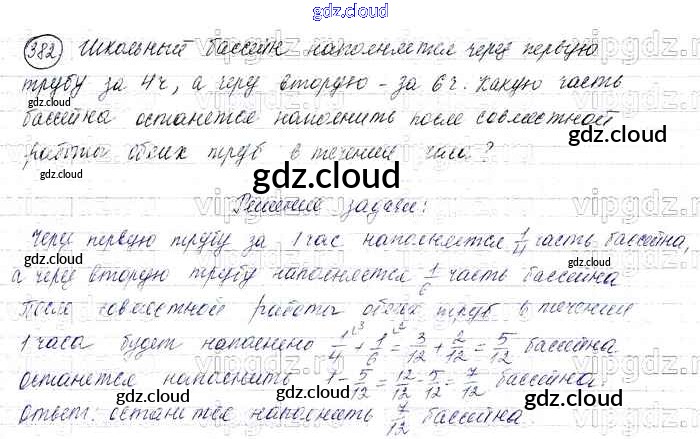 gdz.cloud
382 Школьный бассейн наполняется через первую
трубу за 4ч, а через вторую - за 6ч. Какую часть
gdz.cloud gdz.cloud
бассейна останется наполнить после совместной
gdz.cloud
работы обеих труб в течении часа?
gdz.cloud
Решение задачи:
Через первую трубу за 1 час наполняется 1/4 часть бассейна,
а через вторую трубу наполняется 1/6 часть бассейна
gdz.cloud gdz.cloud
После совместной работы обеих труб в течении
1 часа будет наполнено 1/4 ⁽³ + 1/6 ⁽² = 3/12 + 2/12 = 5/12 бассейна
останется наполнить 1 - 5/12 = 12/12 - 5/12 = 7/12 бассейна.
gdz.cloud gdz.cloud
Ответ: останется наполнить 7/12 бассейна.